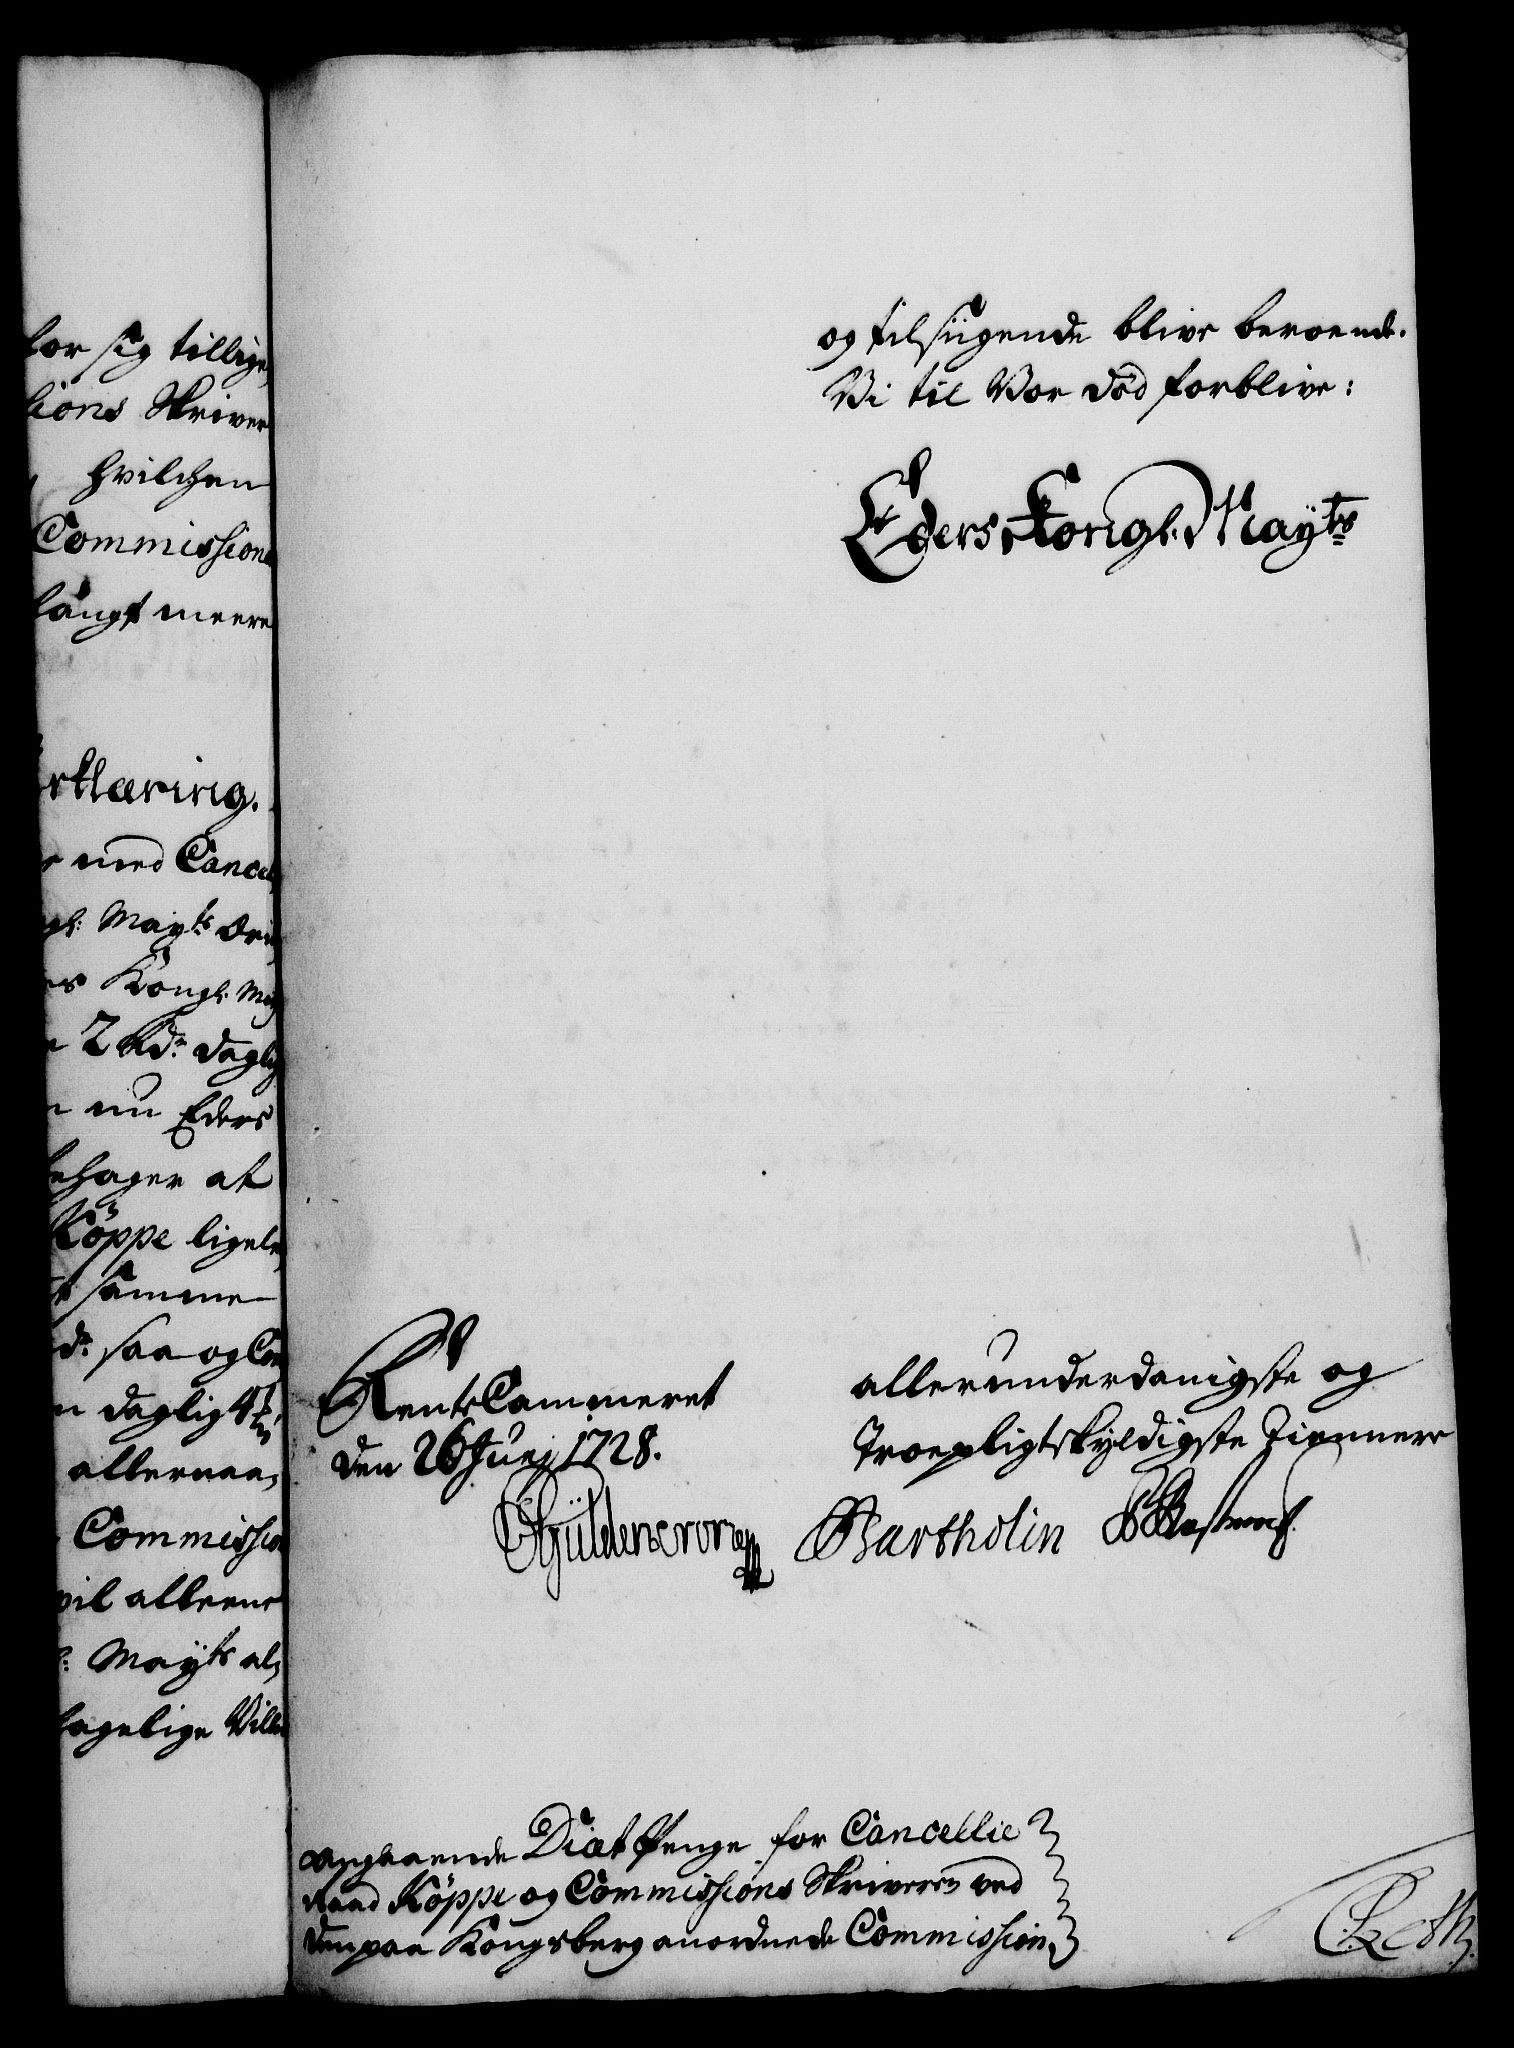 for sig tillige,
sions Skriver
hvilchen
Commissions
langt meere
rklæring.
med Cancel,
gl: Mayts Ori,
es Kongl. May
2 Rdr daglig
nu Eders
behager at
Köppe ligele,
samme
dr saa og Com
n daglig 4
allernaa,
Commission
vil alleene
l: Mayts al,
hagelige Villie
og tilsiigende blive beroende.
Vi til Vor død forblive:
Eders Kongl. Mayts
RenteCammeret
den 26 Junj 1728.
allerunderdanigste og
Troepligtskyldigste Tiennere
Güldencrone
Bartholin
Angaaende Diæt Penge for Cancellie
Raad Köppe og Commissions Skriveren ved
den paa Kongsberg anordnede Commission.